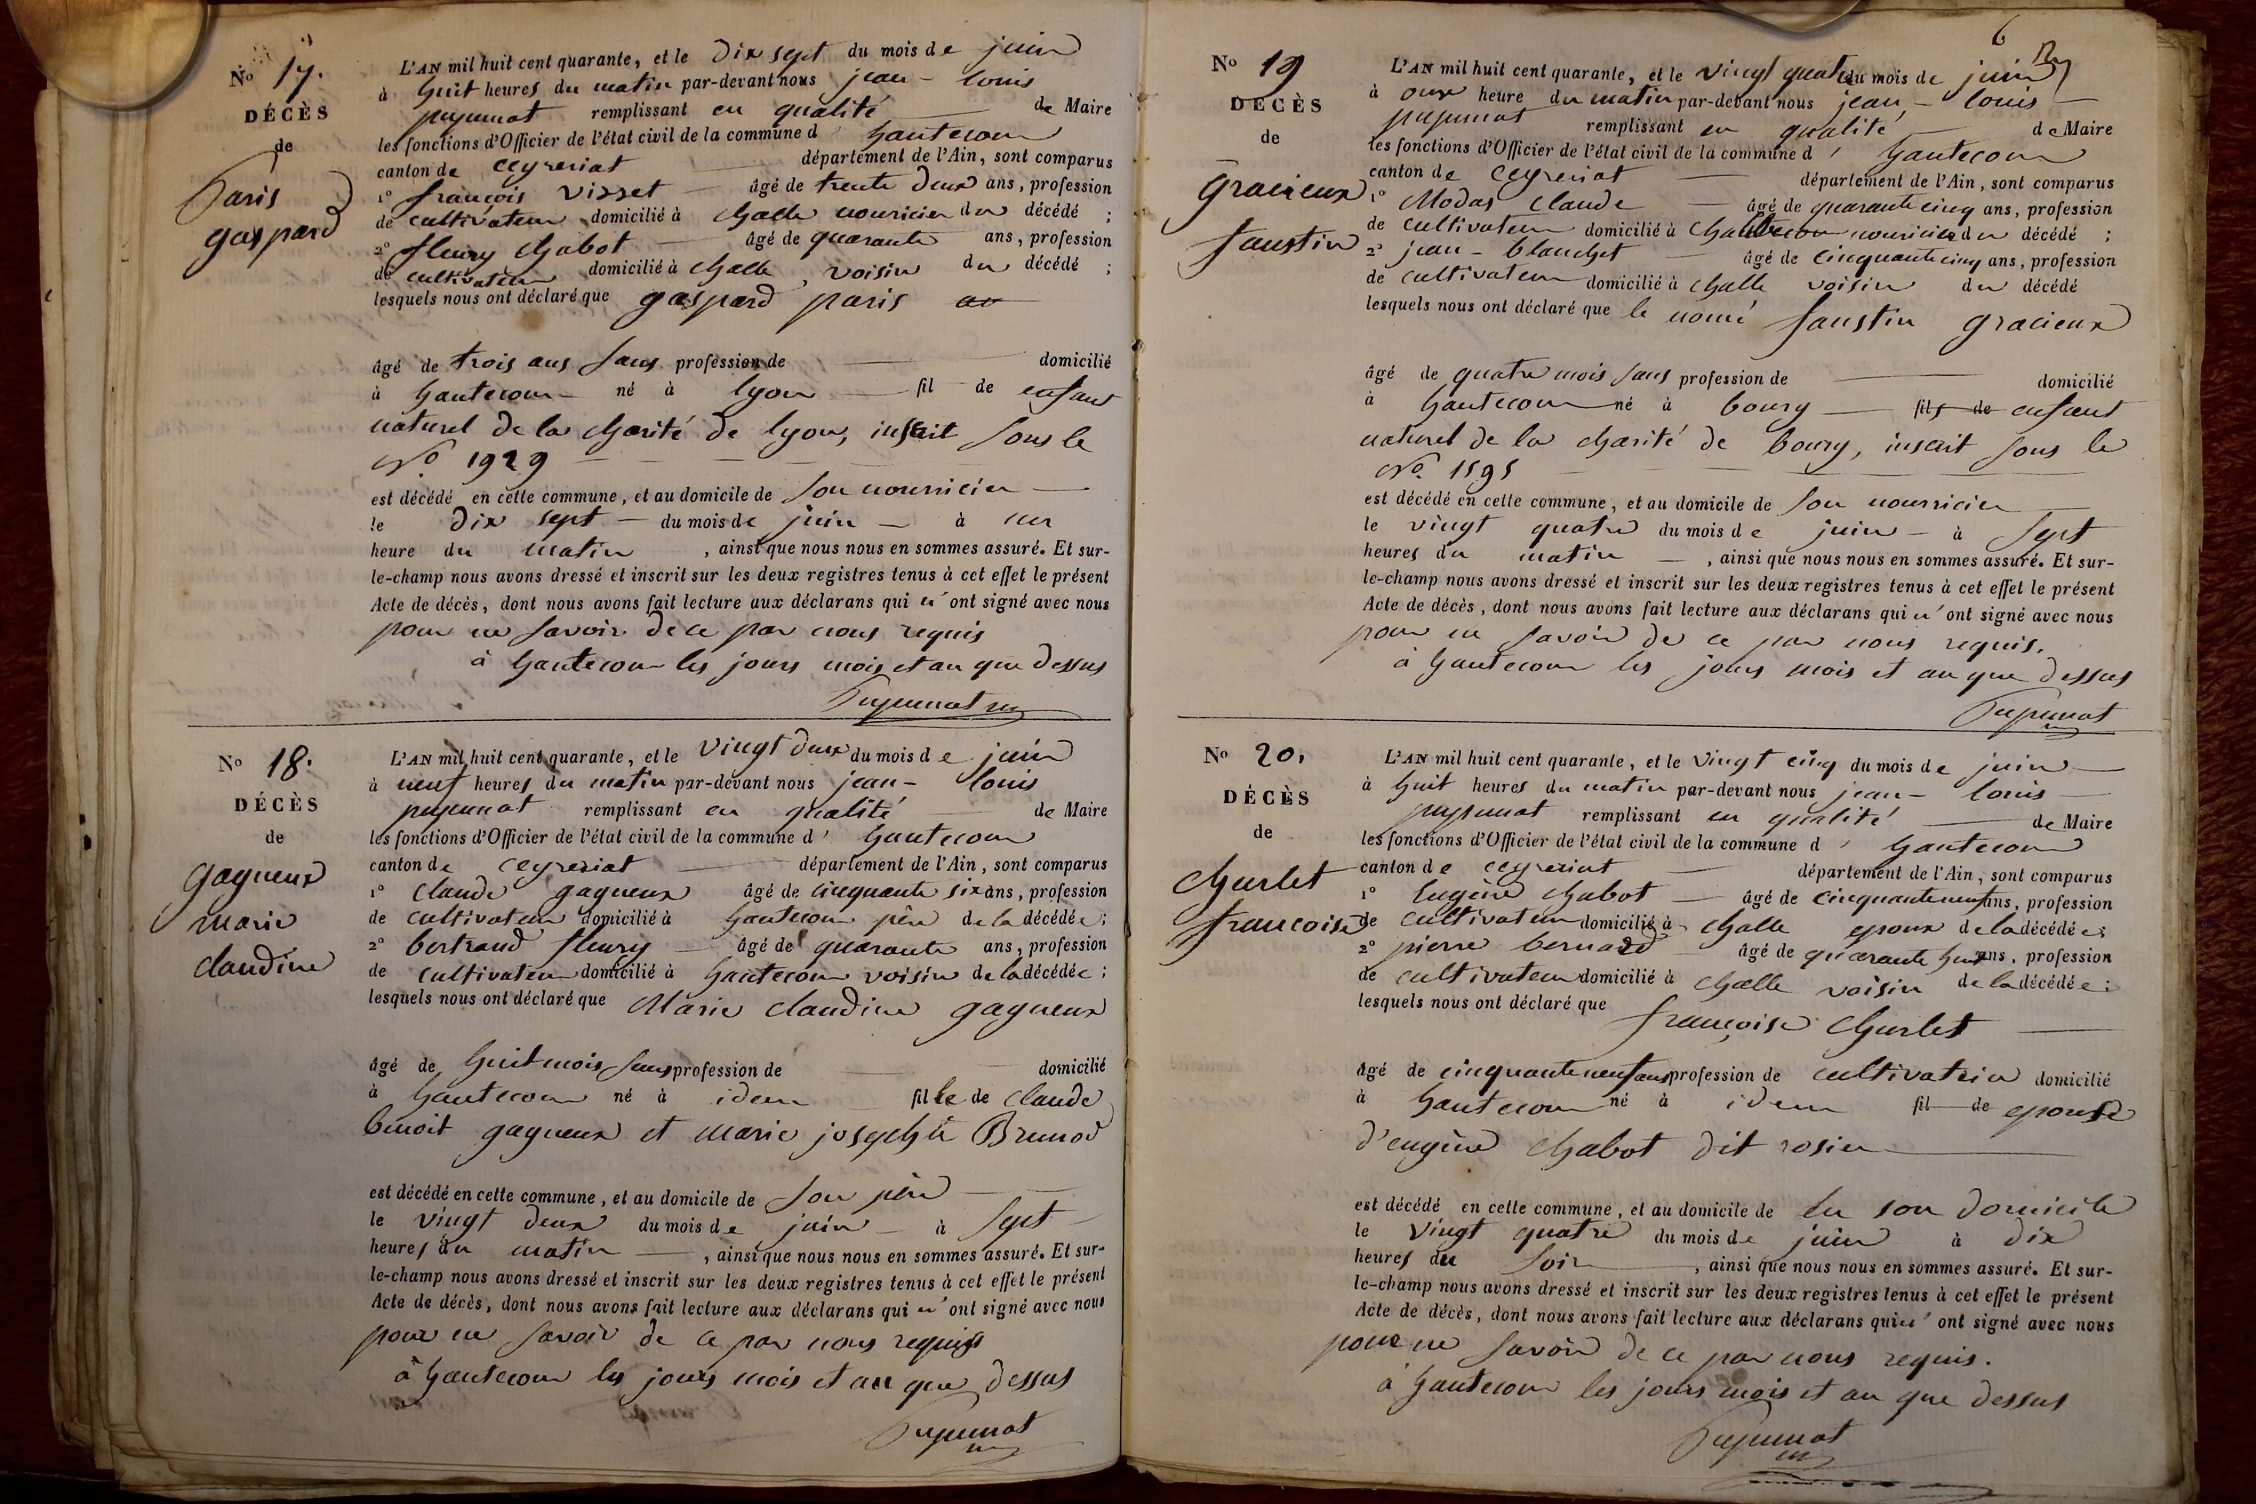 No 17.
DÉCÈS
de
Paris
gaspard
L'AN mil huit cent quarante, et le dix sept du mois de juin
à huit heures du matin par-devant nous jean - louis
pupunat remplissant en qualité de Maire
les fonctions d'Officier de l'état civil de la commune d' hautecour
canton de ceyzeriat département de l'Ain, sont comparus
1° françois visset âgé de trente deux ans, profession
de cultivateur domicilié à challe nouricier du décédé ;
2° fleury chabot âgé de quarante ans, profession
de cultivateur domicilié à challe voisin du décédé ;
lesquels nous ont déclaré que gaspard paris
âgé de trois ans sans profession de domicilié
à hautecour né à lyon fil de enfant
naturel de la charité de lyon, inscrit sous le
No 1929
est décédé en cette commune, et au domicile de son nourricier
le dix sept du mois de juin à une
heure du matin , ainsi que nous nous en sommes assuré. Et sur-
le-champ nous avons dressé et inscrit sur les deux registres tenus à cet effet le présent
Acte de décès, dont nous avons fait lecture aux déclarans qui n'ont signé avec nous
pour ne savoir de ce par nous requis
à hautecour les jours mois et an que dessus
Pupunat
No 18.
DÉCÈS
de
gagneux
marie
claudine
L'AN mil huit cent quarante, et le vingt deux du mois de juin
à neuf heures du matin par-devant nous jean - louis
pupunat remplissant en qualité de Maire
les fonctions d'Officier de l'état civil de la commune d' hautecour
canton de ceyzeriat département de l'Ain, sont comparus
1° claude gagneux âgé de cinquante six ans, profession
de cultivateur domicilié à hautecour père de la décédée ;
2° bertrand fleury âgé de quarante ans, profession
de cultivateur domicilié à hautecour voisin de la décédée ;
lesquels nous ont déclaré que Marie claudine gagneux
âgé de huit mois sans profession de domicilié
à hautecour né à idem fille de claude
benoit gagneux et marie josephte Brunod
est décédé en cette commune, et au domicile de son père
le vingt deux du mois de juin à sept
heures du matin , ainsi que nous nous en sommes assuré. Et sur-
le-champ nous avons dressé et inscrit sur les deux registres tenus à cet effet le présent
Acte de décès, dont nous avons fait lecture aux déclarans qui n'ont signé avec nous
pour ne savoir de ce par nous requis
à hautecour les jours mois et an que dessus
Pupunat
6
No 19
DÉCÈS
de
gracieux
faustin
L'AN mil huit cent quarante, et le vingt quatre du mois de juin
à onze heure du matin par-devant nous jean - louis
pupunat remplissant en qualité de Maire
les fonctions d'Officier de l'état civil de la commune d' hautecour
canton de ceyzeriat département de l'Ain, sont comparus
1° Modas claude âgé de quarante cinq ans, profession
de cultivateur domicilié à nouricier du décédé ;
2° jean - blanchet âgé de cinquante cinq ans, profession
de cultivateur domicilié à challe voisin du décédé
lesquels nous ont déclaré que le nomé faustin gracieux
âgé de quatre mois sans profession de domicilié
à hautecour né à bourg fils de enfant
naturel de la charité de bourg, inscrit sous le
No. 1595
est décédé en cette commune, et au domicile de son nourricier
le vingt quatre du mois de juin à sept
heures du matin , ainsi que nous nous en sommes assuré. Et sur-
le-champ nous avons dressé et inscrit sur les deux registres tenus à cet effet le présent
Acte de décès, dont nous avons fait lecture aux déclarans qui n'ont signé avec nous
pour ne savoir de ce par nous requis.
à hautecour les jours mois et an que dessus
Pupunat
No 20.
DÉCÈS
de
churlet
francoise
L'AN mil huit cent quarante, et le vingt cinq du mois de juin
à huit heures du matin par-devant nous jean - louis
pupunat remplissant en qualité de Maire
les fonctions d'Officier de l'état civil de la commune d' hautecour
canton de ceyzeriat département de l'Ain, sont comparus
1° Eugène chabot âgé de cinquante neuf ans, profession
de cultivateur domicilié à challe epoux de la décédée ;
2° pierre bernard âgé de quarante huit ans, profession
de cultivateur domicilié à challe voisin de la décédée ;
lesquels nous ont déclaré que
françoise churlet
âgé de cinquante neuf ans profession de cultivatrice domicilié
à hautecour né à idem fil de epouse
d'eugène chabot dit rosier
est décédé en cette commune, et au domicile de en son domicile
le vingt quatre du mois de juin à dix
heures du soir , ainsi que nous nous en sommes assuré. Et sur-
le-champ nous avons dressé et inscrit sur les deux registres tenus à cet effet le présent
Acte de décès, dont nous avons fait lecture aux déclarans qui n'ont signé avec nous
pour ne savoir de ce par nous requis.
à hautecour les jours mois et an que dessus
Pupunat